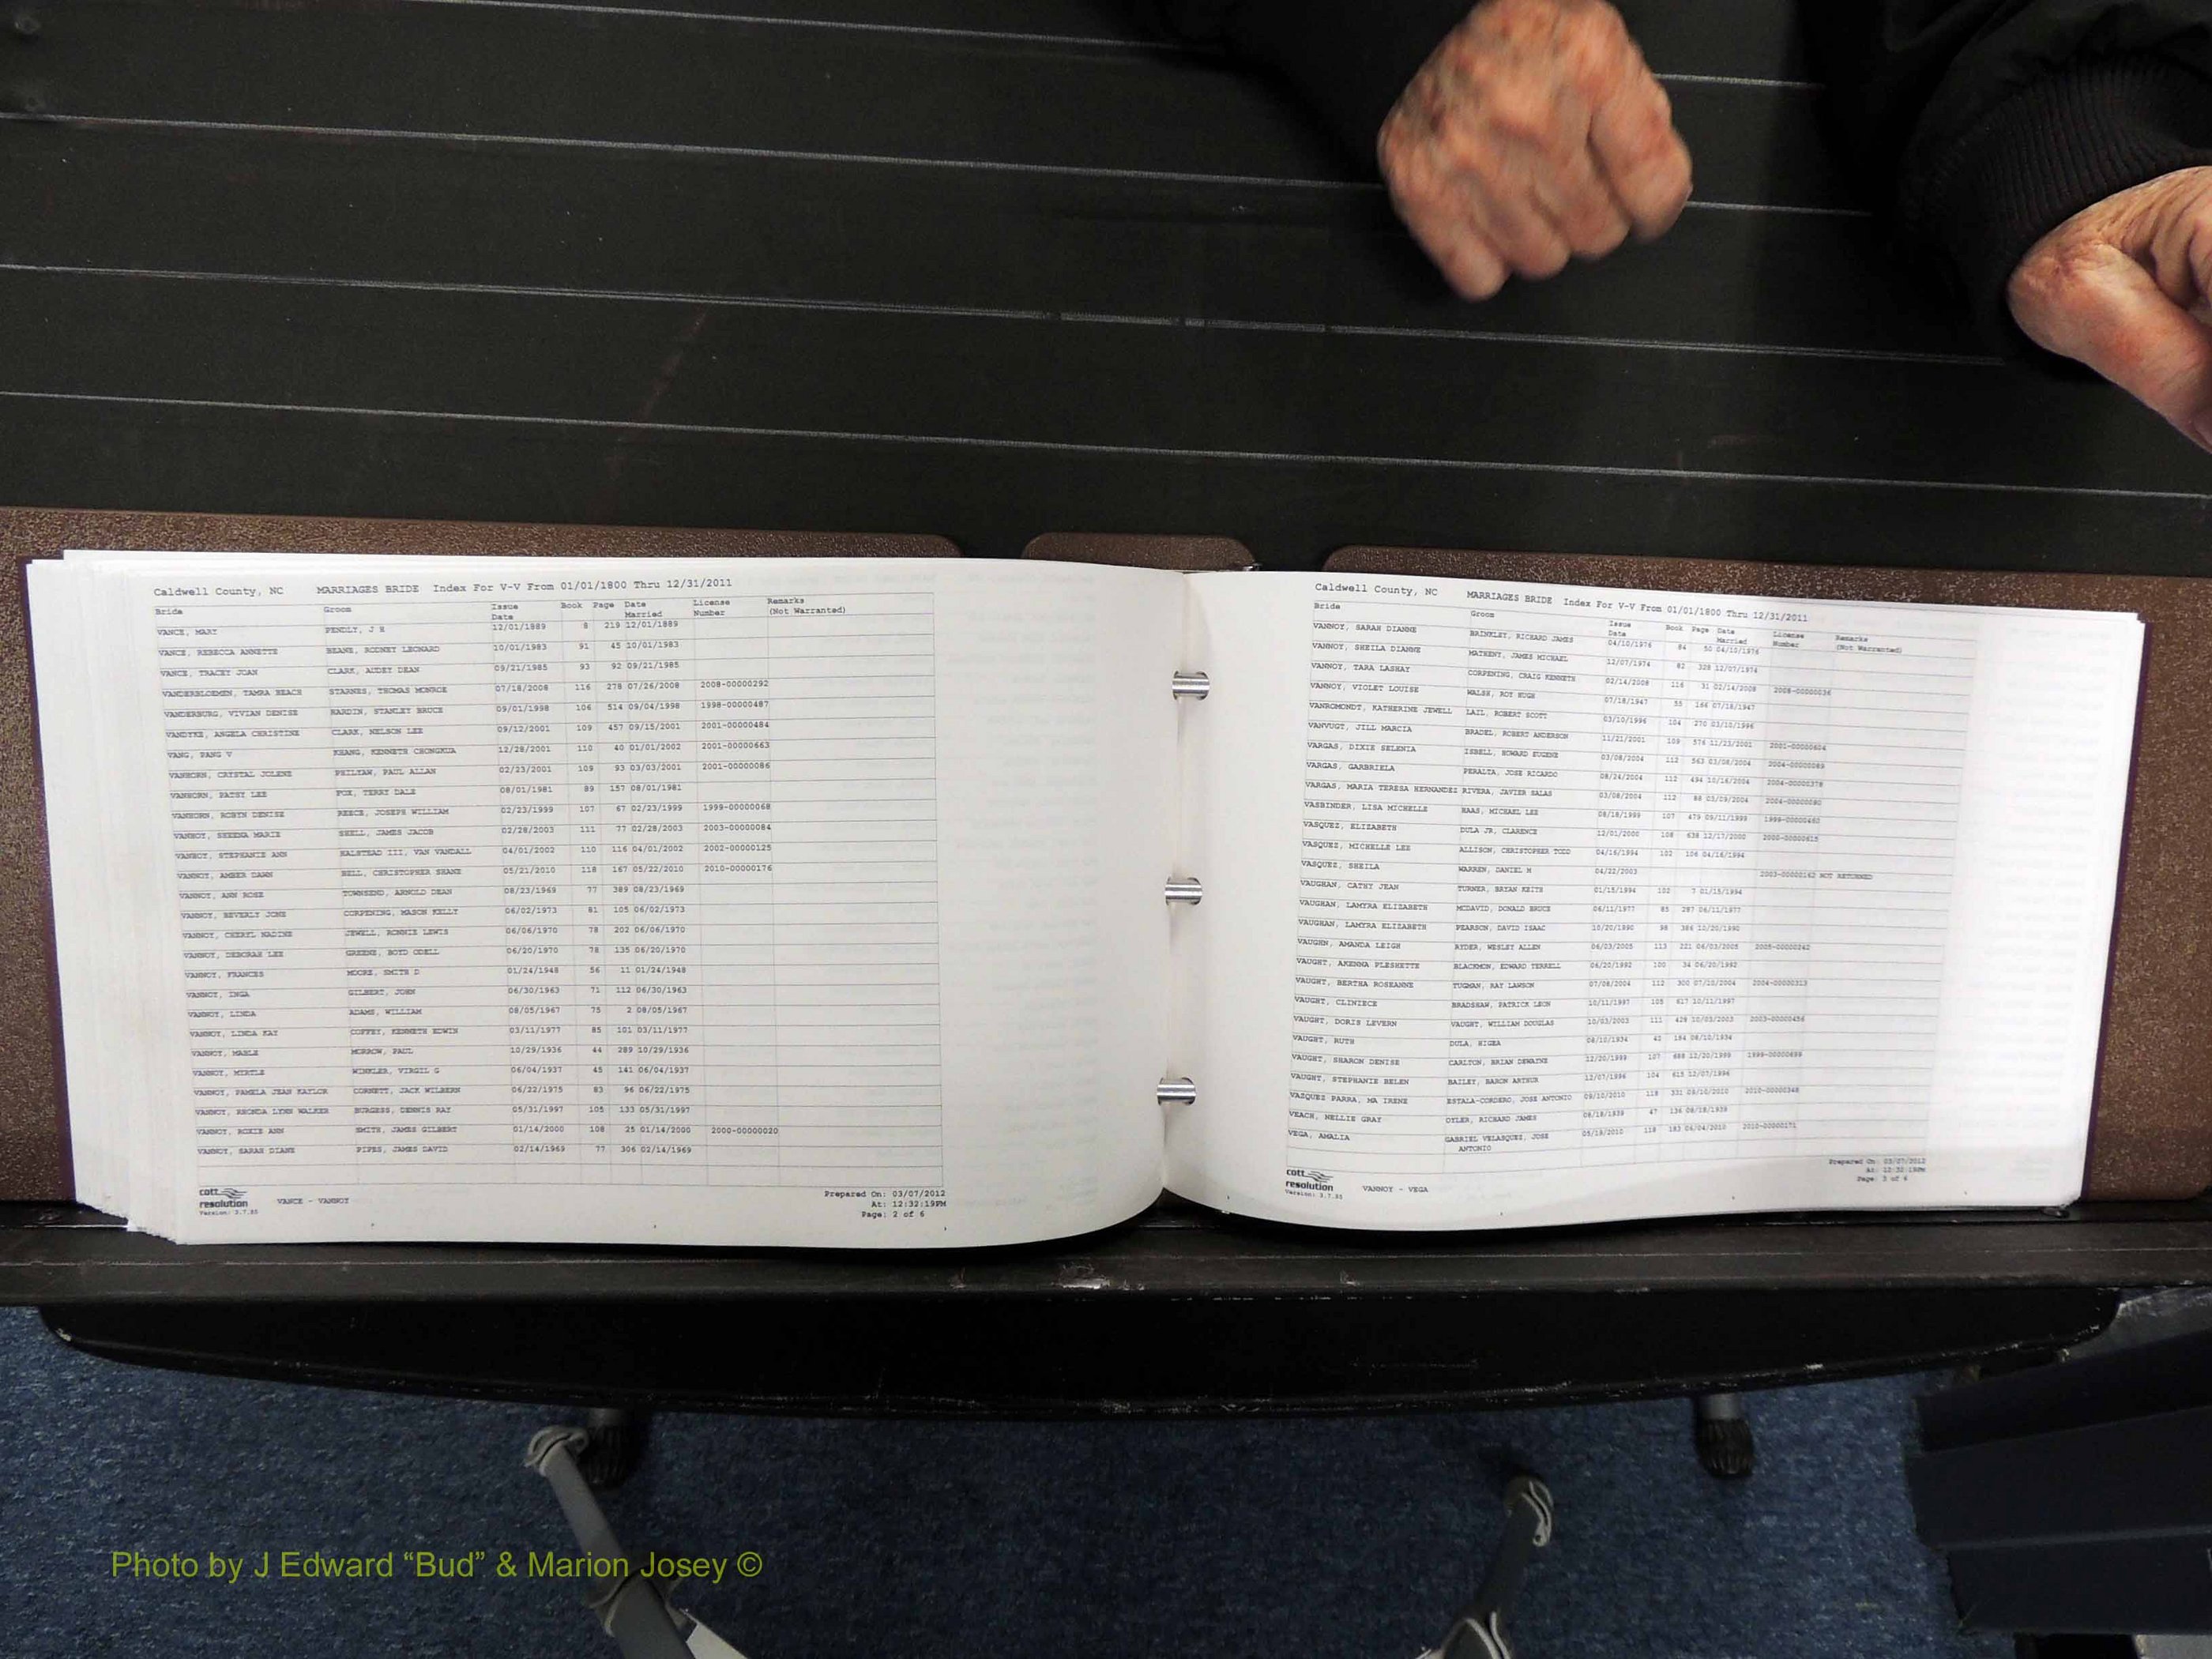 Caldwell County, NC MARRIAGES BRIDE Index For V-V From 01/01/1800 Thru 12/31/2011
Bride Groom Issue Date Book Page Date Married License Number Remarks (Not Warranted)
VANCE, MARY PENDLY, J H 12/01/1889 8 219 12/01/1889
VANCE, REBECCA ANNETTE BEANE, RODNEY LEONARD 10/01/1983 91 45 10/01/1983
VANCE, TRACEY JOAN CLARK, AUDEY DEAN 09/21/1985 93 92 09/21/1985
VANDERBLOEMEN, TAMRA BEACH STARNES, THOMAS MONROE 07/18/2008 116 278 07/26/2008 2008-00000292
VANDERBURG, VIVIAN DENISE HARDIN, STANLEY BRUCE 09/01/1998 106 514 09/04/1998 1998-00000487
VANDYKE, ANGELA CHRISTINE CLARK, NELSON LEE 09/12/2001 109 457 09/15/2001 2001-00000484
VANG, PANG V KHANG, KENNETH CHONGKUA 12/28/2001 110 40 01/01/2002 2001-00000663
VANHORN, CRYSTAL JOLENE PHILYAW, PAUL ALLAN 02/23/2001 109 93 03/03/2001 2001-00000086
VANHORN, PATSY LEE FOX, TERRY DALE 08/01/1981 89 157 08/01/1981
VANHORN, ROBYN DENISE REECE, JOSEPH WILLIAM 02/23/1999 107 67 02/23/1999 1999-00000068
VANHOY, SHEENA MARIE SHELL, JAMES JACOB 02/28/2003 111 77 02/28/2003 2003-00000084
VANHOY, STEPHANIE ANN HALSTEAD III, VAN VANDALL 04/01/2002 110 116 04/01/2002 2002-00000125
VANNOY, AMBER DAWN BELL, CHRISTOPHER SHANE 05/21/2010 118 167 05/22/2010 2010-00000176
VANNOY, ANN ROSE TOWNSEND, ARNOLD DEAN 08/23/1969 77 389 08/23/1969
VANNOY, BEVERLY JONE CORPENING, MASON KELLY 06/02/1973 81 105 06/02/1973
VANNOY, CHERYL NADINE JEWELL, RONNIE LEWIS 06/06/1970 78 202 06/06/1970
VANNOY, DEBORAH LEE GREENE, BOYD ODELL 06/20/1970 78 135 06/20/1970
VANNOY, FRANCES MOORE, SMITH D 01/24/1948 56 11 01/24/1948
VANNOY, INGA GILBERT, JOHN 06/30/1963 71 112 06/30/1963
VANNOY, LINDA ADAMS, WILLIAM 08/05/1967 75 2 08/05/1967
VANNOY, LINDA KAY COFFEY, KENNETH EDWIN 03/11/1977 85 101 03/11/1977
VANNOY, MABLE MORROW, PAUL 10/29/1936 44 289 10/29/1936
VANNOY, MYRTLE WINKLER, VIRGIL G 06/04/1937 45 141 06/04/1937
VANNOY, PAMELA JEAN KAYLOR CORNETT, JACK WILBERN 06/22/1975 83 96 06/22/1975
VANNOY, RHONDA LYNN WALKER BURGESS, DENNIS RAY 05/31/1997 105 133 05/31/1997
VANNOY, ROXIE ANN SMITH, JAMES GILBERT 01/14/2000 108 25 01/14/2000 2000-00000020
VANNOY, SARAH DIANE PIPES, JAMES DAVID 02/14/1969 77 306 02/14/1969
cott resolution
Version: 3.7.85
VANCE - VANNOY
Prepared On: 03/07/2012
At: 12:32:19PM
Page: 2 of 6
Caldwell County, NC MARRIAGES BRIDE Index For V-V From 01/01/1800 Thru 12/31/2011
Bride Groom Issue Date Book Page Date Married License Number Remarks (Not Warranted)
VANNOY, SARAH DIANNE BRINKLEY, RICHARD JAMES 04/10/1976 84 50 04/10/1976
VANNOY, SHEILA DIANNE MATHENY, JAMES MICHAEL 12/07/1974 82 328 12/07/1974
VANNOY, TARA LASHAY CORPENING, CRAIG KENNETH 02/14/2008 116 31 02/14/2008 2008-00000036
VANNOY, VIOLET LOUISE WALSH, ROY HUGH 07/18/1947 55 166 07/18/1947
VANROMONDT, KATHERINE JEWELL LAIL, ROBERT SCOTT 03/10/1996 104 270 03/10/1996
VANVUGT, JILL MARCIA BRADEL, ROBERT ANDERSON 11/21/2001 109 576 11/23/2001 2001-00000604
VARGAS, DIXIE SELENIA ISBELL, EDWARD EUGENE 03/08/2004 112 563 03/08/2004 2004-00000089
VARGAS, GARBRIELA PERALTA, JOSE RICARDO 08/24/2004 112 494 10/16/2004 2004-00000378
VARGAS, MARIA TERESA HERNANDEZ RIVERA, JAVIER SALAS 03/08/2004 112 88 03/09/2004 2004-00000080
VASBINDER, LISA MICHELLE HAAS, MICHAEL LEE 08/18/1999 107 479 09/11/1999 1999-00000460
VASQUEZ, ELIZABETH DULA JR, CLARENCE 12/01/2000 108 638 12/17/2000 2000-00000615
VASQUEZ, MICHELLE LEE ALLISON, CHRISTOPHER TODD 04/16/1994 102 106 04/16/1994
VASQUEZ, SHEILA WARREN, DANIEL M 04/22/2003 2003-00000162 NOT RETURNED
VAUGHAN, CATHY JEAN TURNER, BRYAN KEITH 01/15/1994 102 7 01/15/1994
VAUGHAN, LAMYRA ELIZABETH MCDAVID, DONALD BRUCE 06/11/1977 85 287 06/11/1977
VAUGHAN, LAMYRA ELIZABETH PEARSON, DAVID ISAAC 10/20/1990 98 386 10/20/1990
VAUGHN, AMANDA LEIGH RYDER, WESLEY ALLEN 06/03/2005 113 221 06/03/2005 2005-00000242
VAUGHT, AKENNA PLESHETTE BLACKMON, EDWARD TERRELL 06/20/1992 100 34 06/20/1992
VAUGHT, BERTHA ROSEANNE TUGMAN, RAY LAWSON 07/08/2004 112 300 07/10/2004 2004-00000313
VAUGHT, CLINIECE BRADSHAW, PATRICK LEON 10/11/1997 105 617 10/11/1997
VAUGHT, DORIS LEVERN VAUGHT, WILLIAM DOUGLAS 10/03/2003 111 428 10/03/2003 2003-00000456
VAUGHT, RUTH DULA, HIGEA 08/10/1934 42 184 08/10/1934
VAUGHT, SHARON DENISE CARLTON, BRIAN DEWAINE 12/20/1999 107 688 12/20/1999 1999-00000699
VAUGHT, STEPHANIE BELEN BAILEY, BARON ARTHUR 12/07/1996 104 615 12/07/1996
VAZQUEZ PARRA, MA IRENE ESTALA-CORDERO, JOSE ANTONIO 09/10/2010 118 331 09/10/2010 2010-00000348
VEACH, NELLIE GRAY OYLER, RICHARD JAMES 08/18/1939 47 136 08/18/1939
VEGA, AMALIA GABRIEL VELASQUEZ, JOSE ANTONIO 05/18/2010 118 183 06/04/2010 2010-00000171
cott resolution
Version: 3.7.85
VANNOY - VEGA
Prepared On: 03/07/2012
At: 12:32:19PM
Page: 3 of 6
Photo by J Edward “Bud” & Marion Josey ©